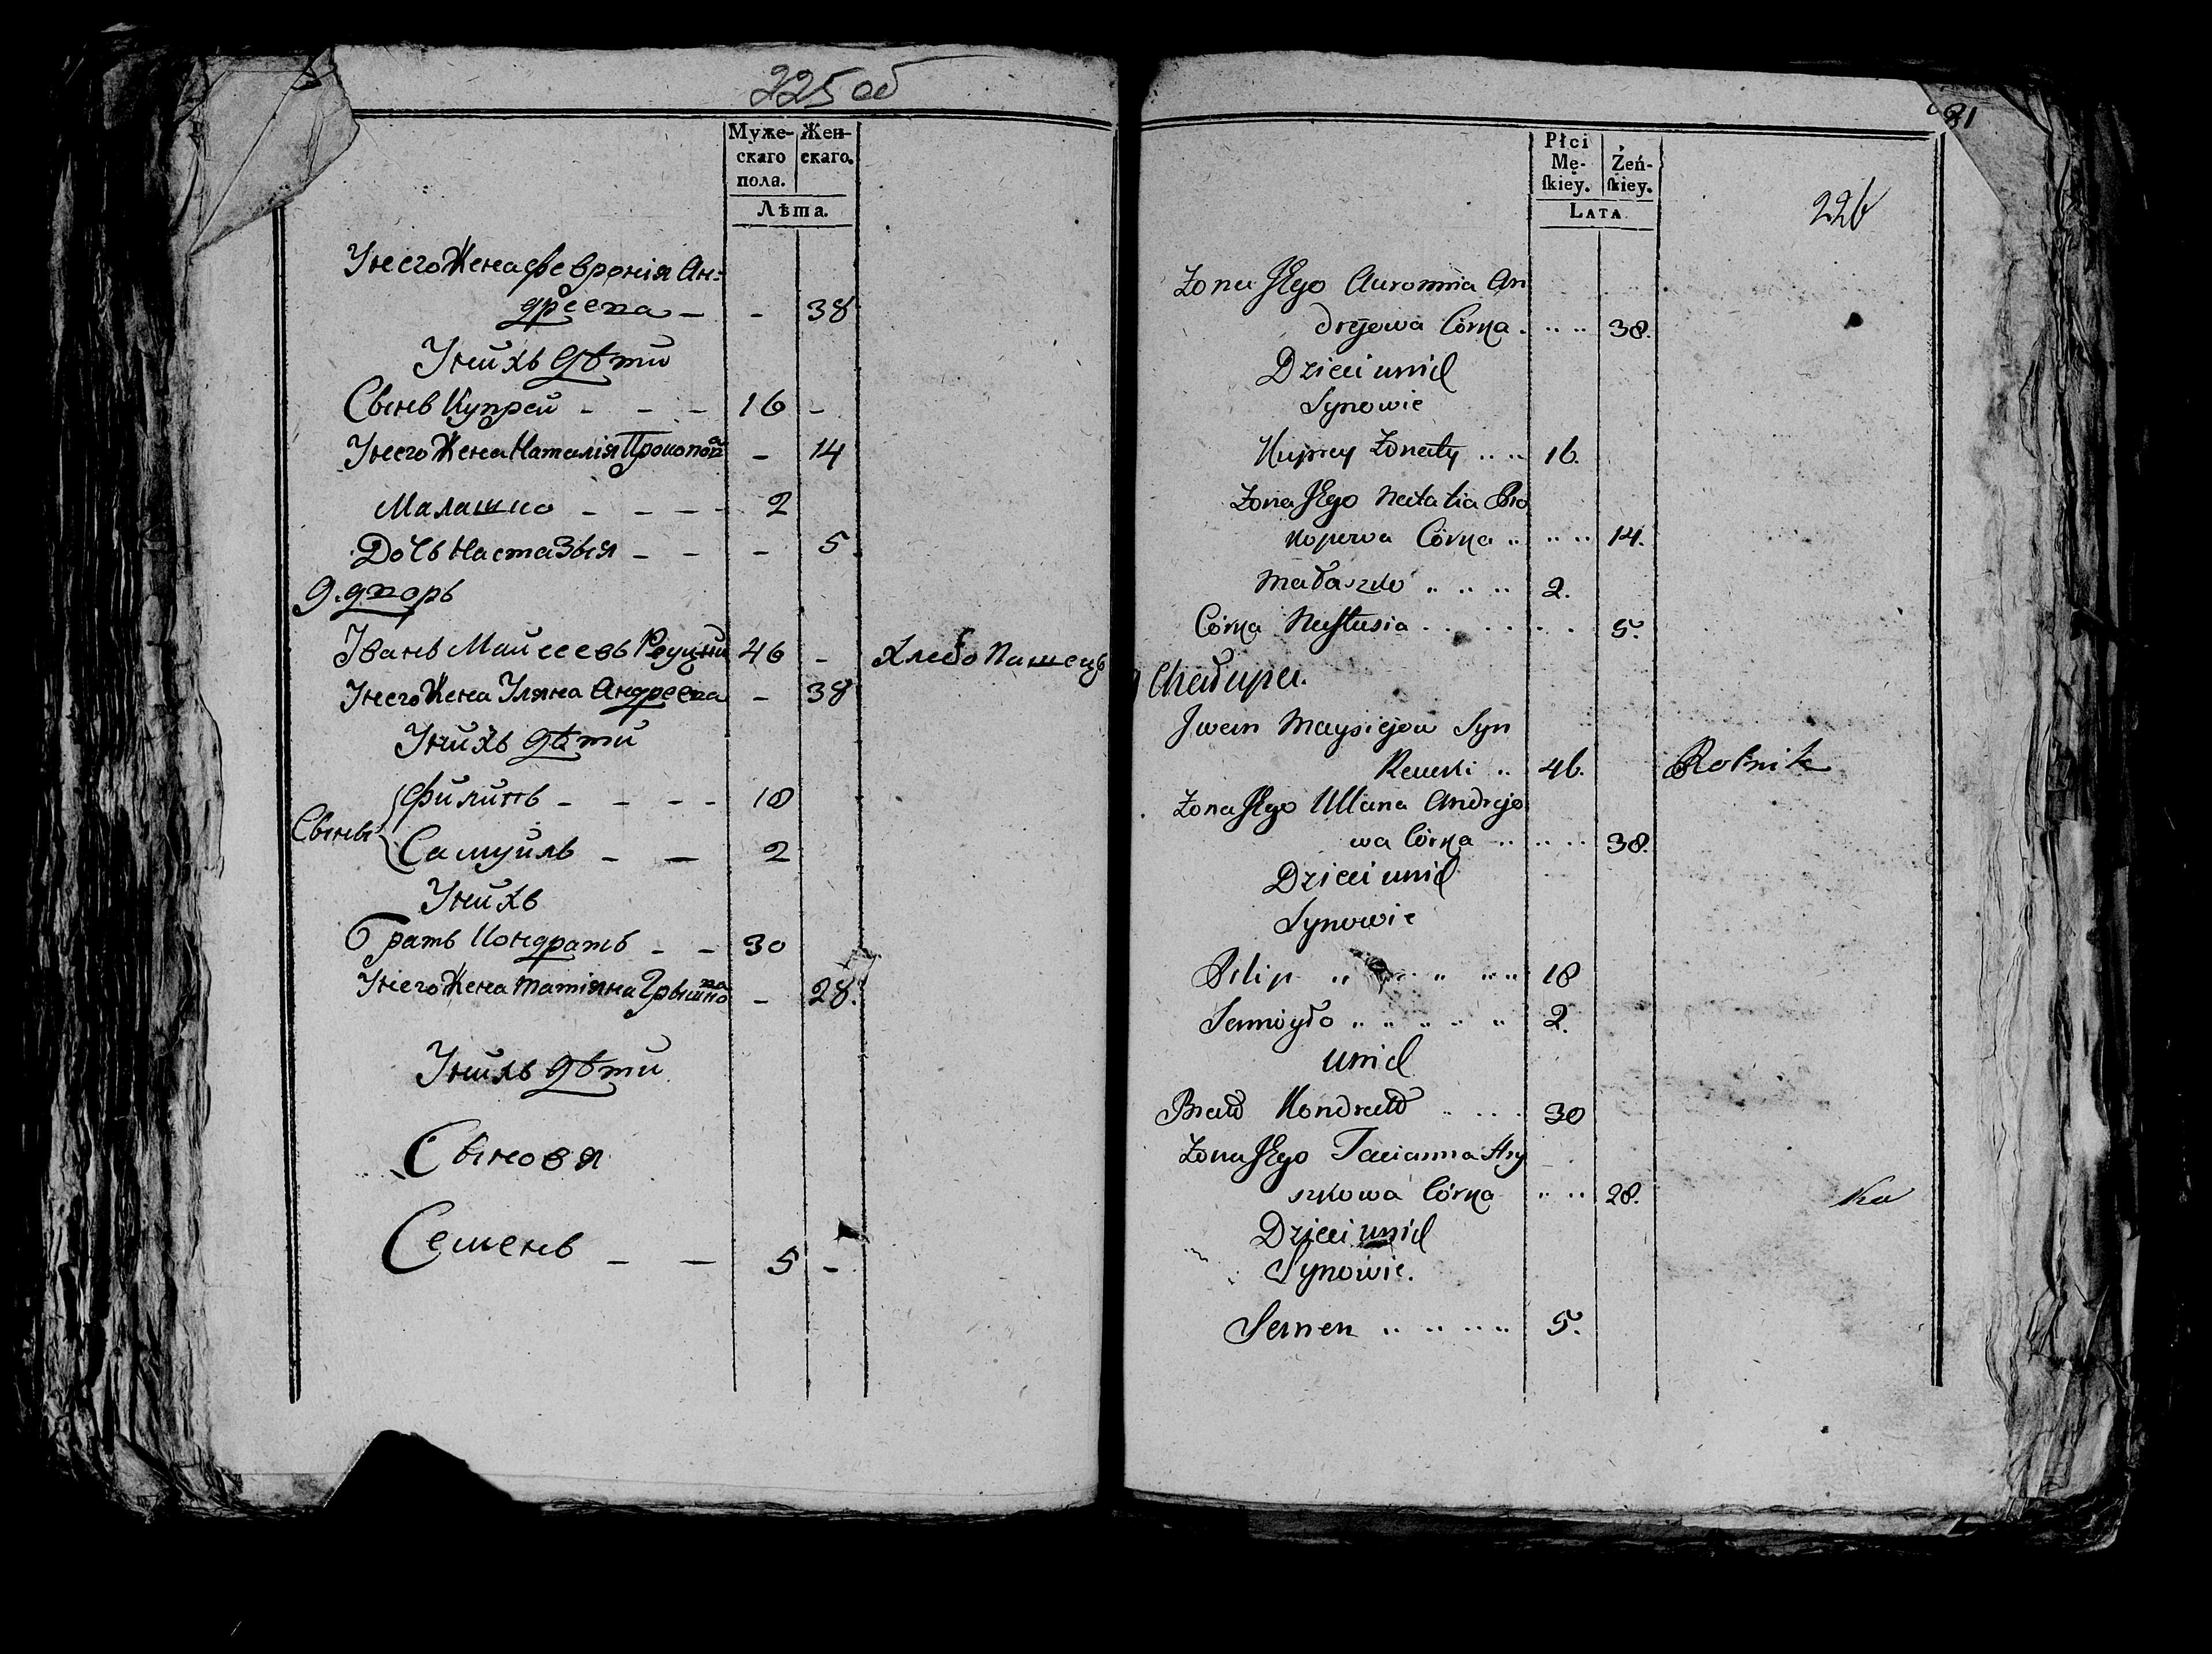 225 об
Муже-
скаго
пола.
Жен-
скаго.
Лѣта.
У него Жена Февронія Ан=
дреева — - 38
У нихъ дѣти
Сынъ Купрей - - - 16 -
У него Жена Наталія Прокопова - 14
Малашко - - - - 2
Дочь Настазыя - - - 5
9. дворъ
Іванъ Майсеевъ Реуцкий 46 - Хлебопашецъ
У него Жена Уляна Андреева - 38
У нихъ дѣти
Сыны { Филипъ - - - - 18
Самуйлъ - - 2
У нихъ
Братъ Кондратъ - - 30
У него Жена Татіяна Грышкова - 28.
У нихъ дѣти
Сыновя
Семенъ - - 5 -
81
226
Płci
Mę-
ſkiey.
Żeń-
ſkiey.
LATA
Żona Jego Auromnia An
drejowa Córka . .. .. 38.
Dzieci unich
Synowie
Kuprey Żonaty .. .. 16.
Żona Jego Natalia Pro
kopowa Córka .. .. .. 14.
Małaszko .. .. .. 2.
Córka Nastusia . . . . . . 5.
9 Chałupa.
Jwan Maysiejow Syn
Reucki .. 46. Rolnik
Żona Jego Ullana Andrejo
wa Córka .. .. .. 38.
Dzieci unich
Synowie
Filip .. .. .. .. 18
Samoyło .. .. .. .. .. 2.
unich
Bratt Kondratt .. . . . 30
Żona Jego Tacianna Hry
szkowa Córka .. .. 28.
Dzieci unich
Synowie.
Semen .. .. .. .. 5.